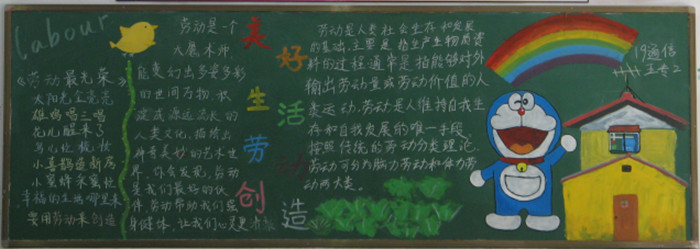 Labour
《劳动最光荣》
太阳光金亮亮
雄鸡唱三唱
花儿醒来了
鸟儿忙梳妆
小喜鹊造新房
小蜜蜂采蜜忙
幸福的生活哪里来
要用劳动来创造
劳动是一个
大魔术师
能变幻出多姿多彩
的世间万物、积
淀成源远流长的
人类文化、描绘出
神奇美妙的艺术世
界、你会发现,劳动
是我们最好的伙
伴 劳动带助我们强
身健体,让我们心灵更
美
好
生
活
劳
动
创
造
劳动是人类社会生存和发展
的基础,主要是指生产生物质资
料的过程 通常是指能够对外
输出劳动量或劳动价值的人
类运动,劳动是人维持自我生
存和自我发展的唯一手段。
按照传统的劳动分类理论,
劳动可分为脑力劳动和体力劳
动两大类。
19通信
五专2